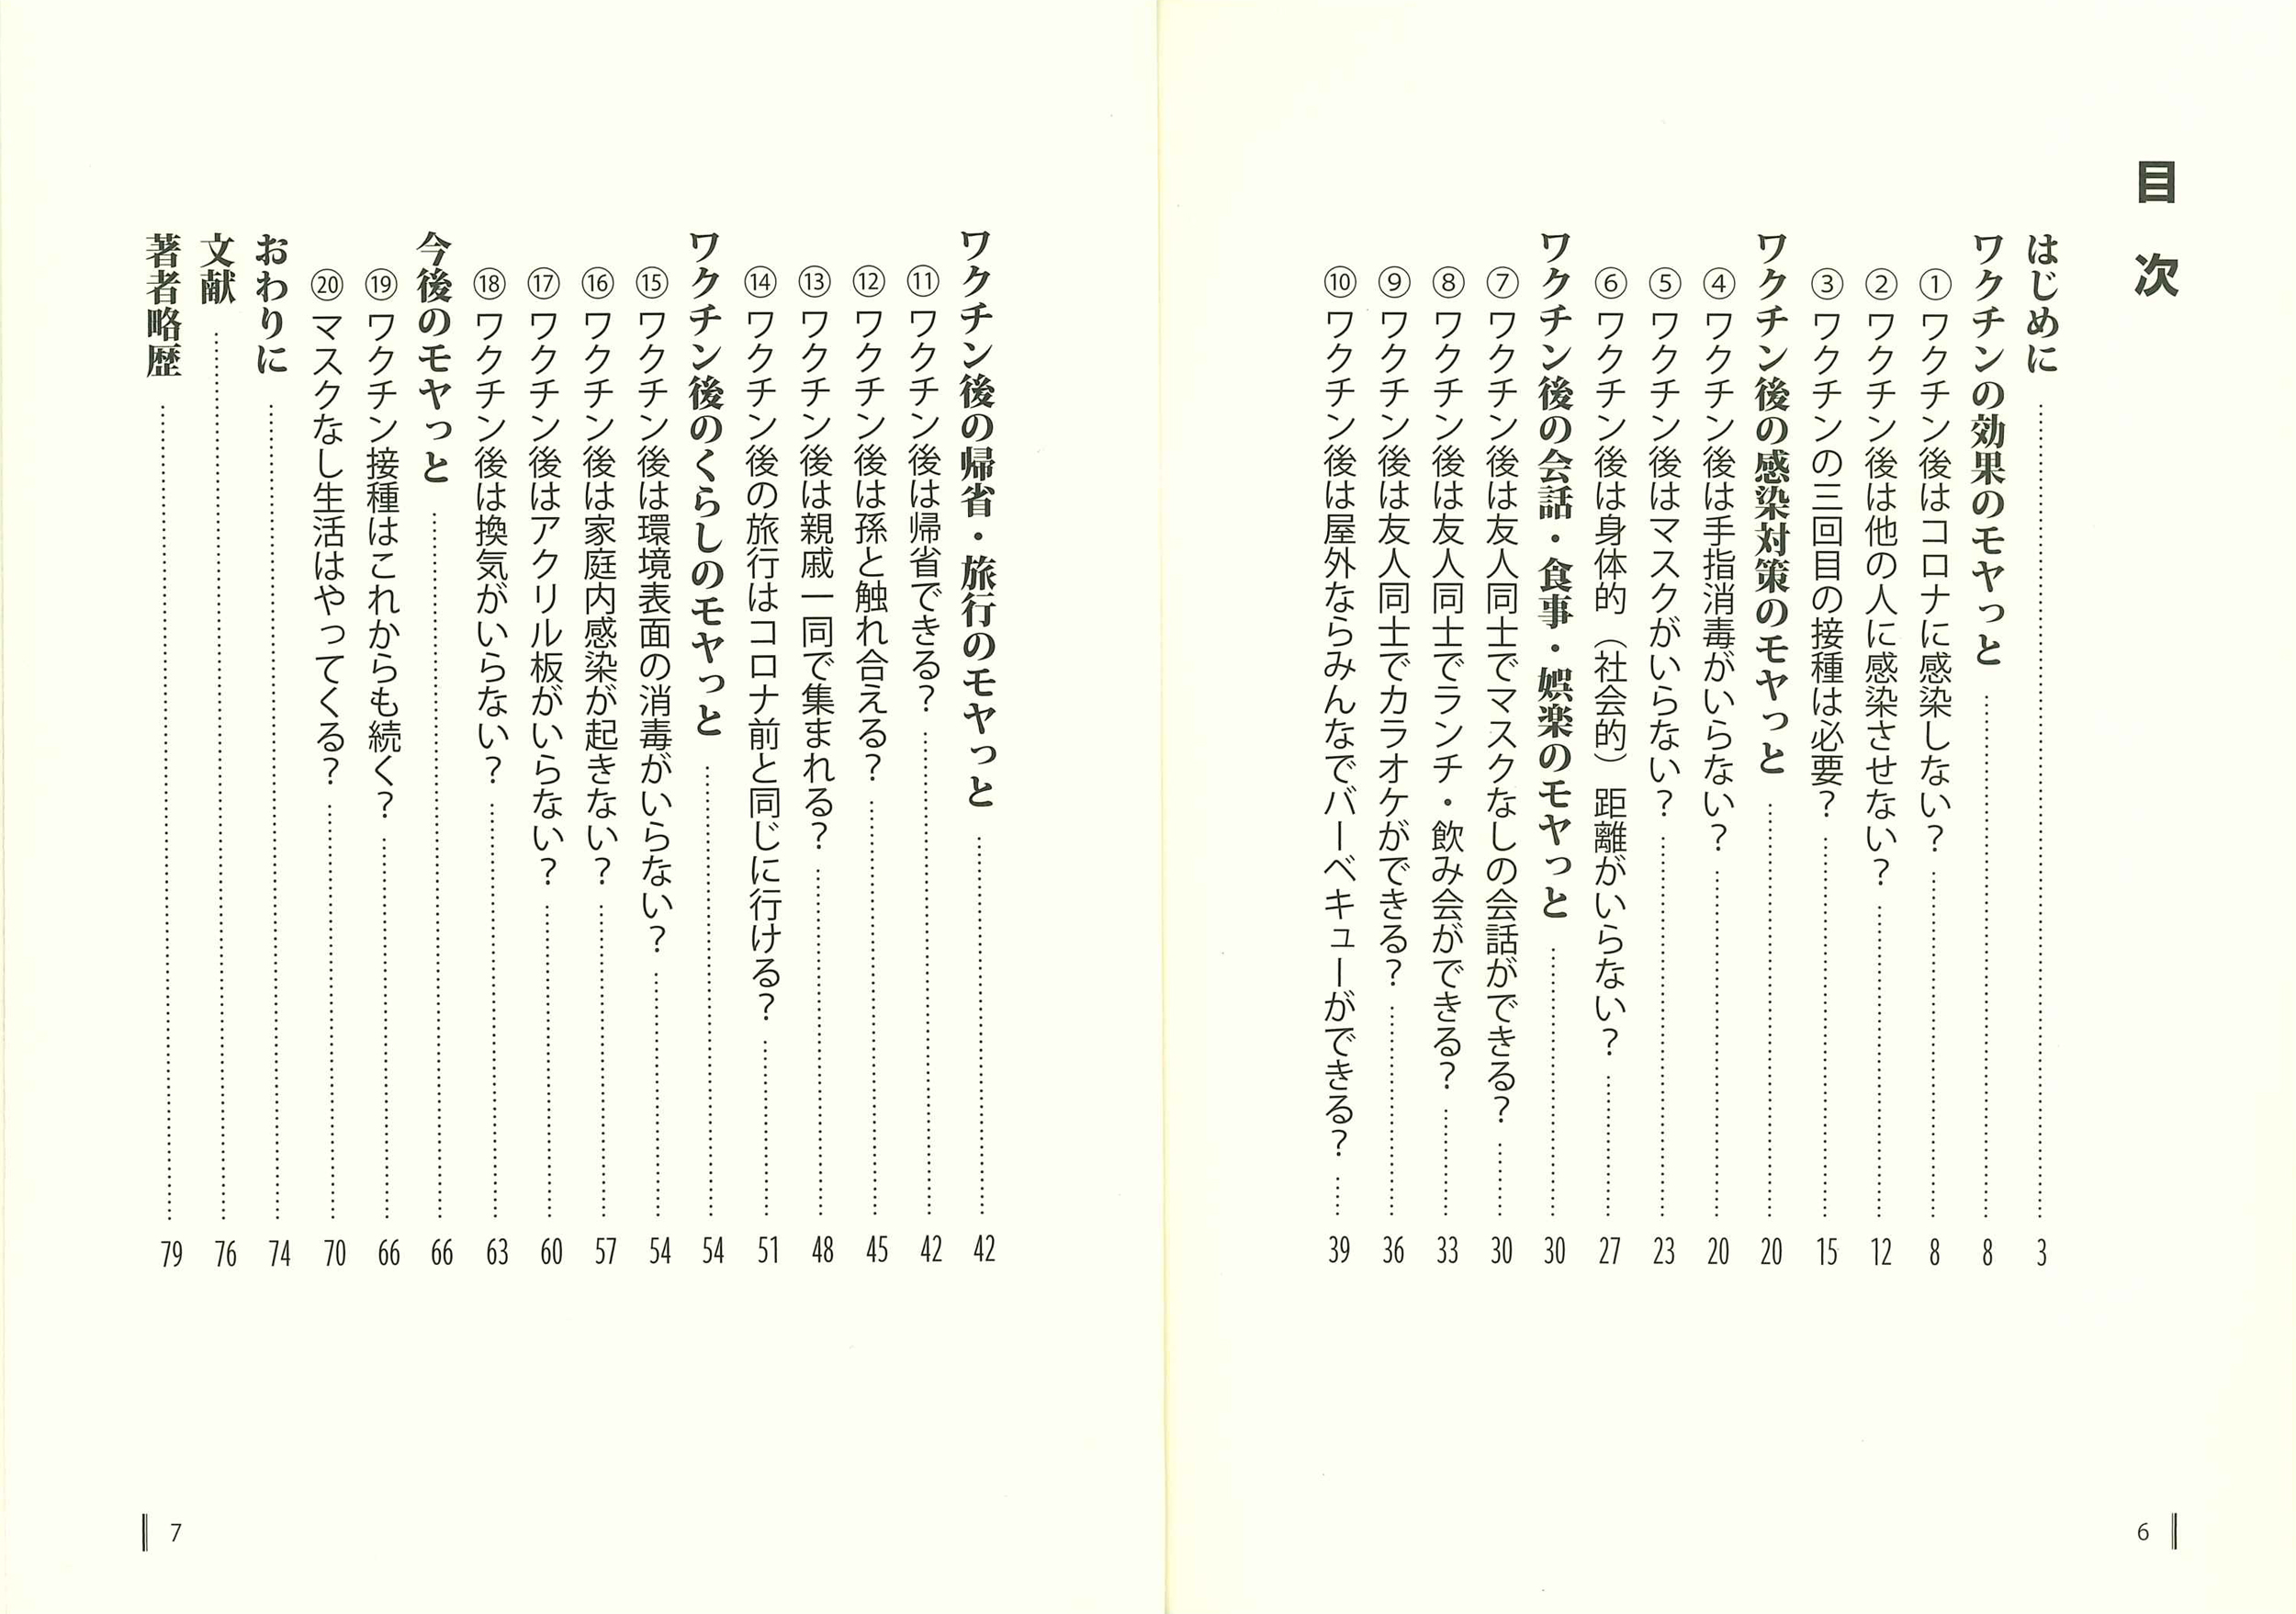 目次
はじめに……3
ワクチンの効果のモヤっと……8
①ワクチン後はコロナに感染しない？……8
②ワクチン後は他の人に感染させない？……12
③ワクチンの三回目の接種は必要？……15
ワクチン後の感染対策のモヤっと……20
④ワクチン後は手指消毒がいらない？……20
⑤ワクチン後はマスクがいらない？……23
⑥ワクチン後は身体的（社会的）距離がいらない？……27
ワクチン後の会話・食事・娯楽のモヤっと……30
⑦ワクチン後は友人同士でマスクなしの会話ができる？……30
⑧ワクチン後は友人同士でランチ・飲み会ができる？……33
⑨ワクチン後は友人同士でカラオケができる？……36
⑩ワクチン後は屋外ならみんなでバーベキューができる？……39
6
ワクチン後の帰省・旅行のモヤっと……42
⑪ワクチン後は帰省できる？……42
⑫ワクチン後は孫と触れ合える？……45
⑬ワクチン後は親戚一同で集まれる？……48
⑭ワクチン後の旅行はコロナ前と同じに行ける？……51
ワクチン後のくらしのモヤっと……54
⑮ワクチン後は環境表面の消毒がいらない？……54
⑯ワクチン後は家庭内感染が起きない？……57
⑰ワクチン後はアクリル板がいらない？……60
⑱ワクチン後は換気がいらない？……63
今後のモヤっと……66
⑲ワクチン接種はこれからも続く？……66
⑳マスクなし生活はやってくる？……70
おわりに……74
文献……76
著者略歴……79
7